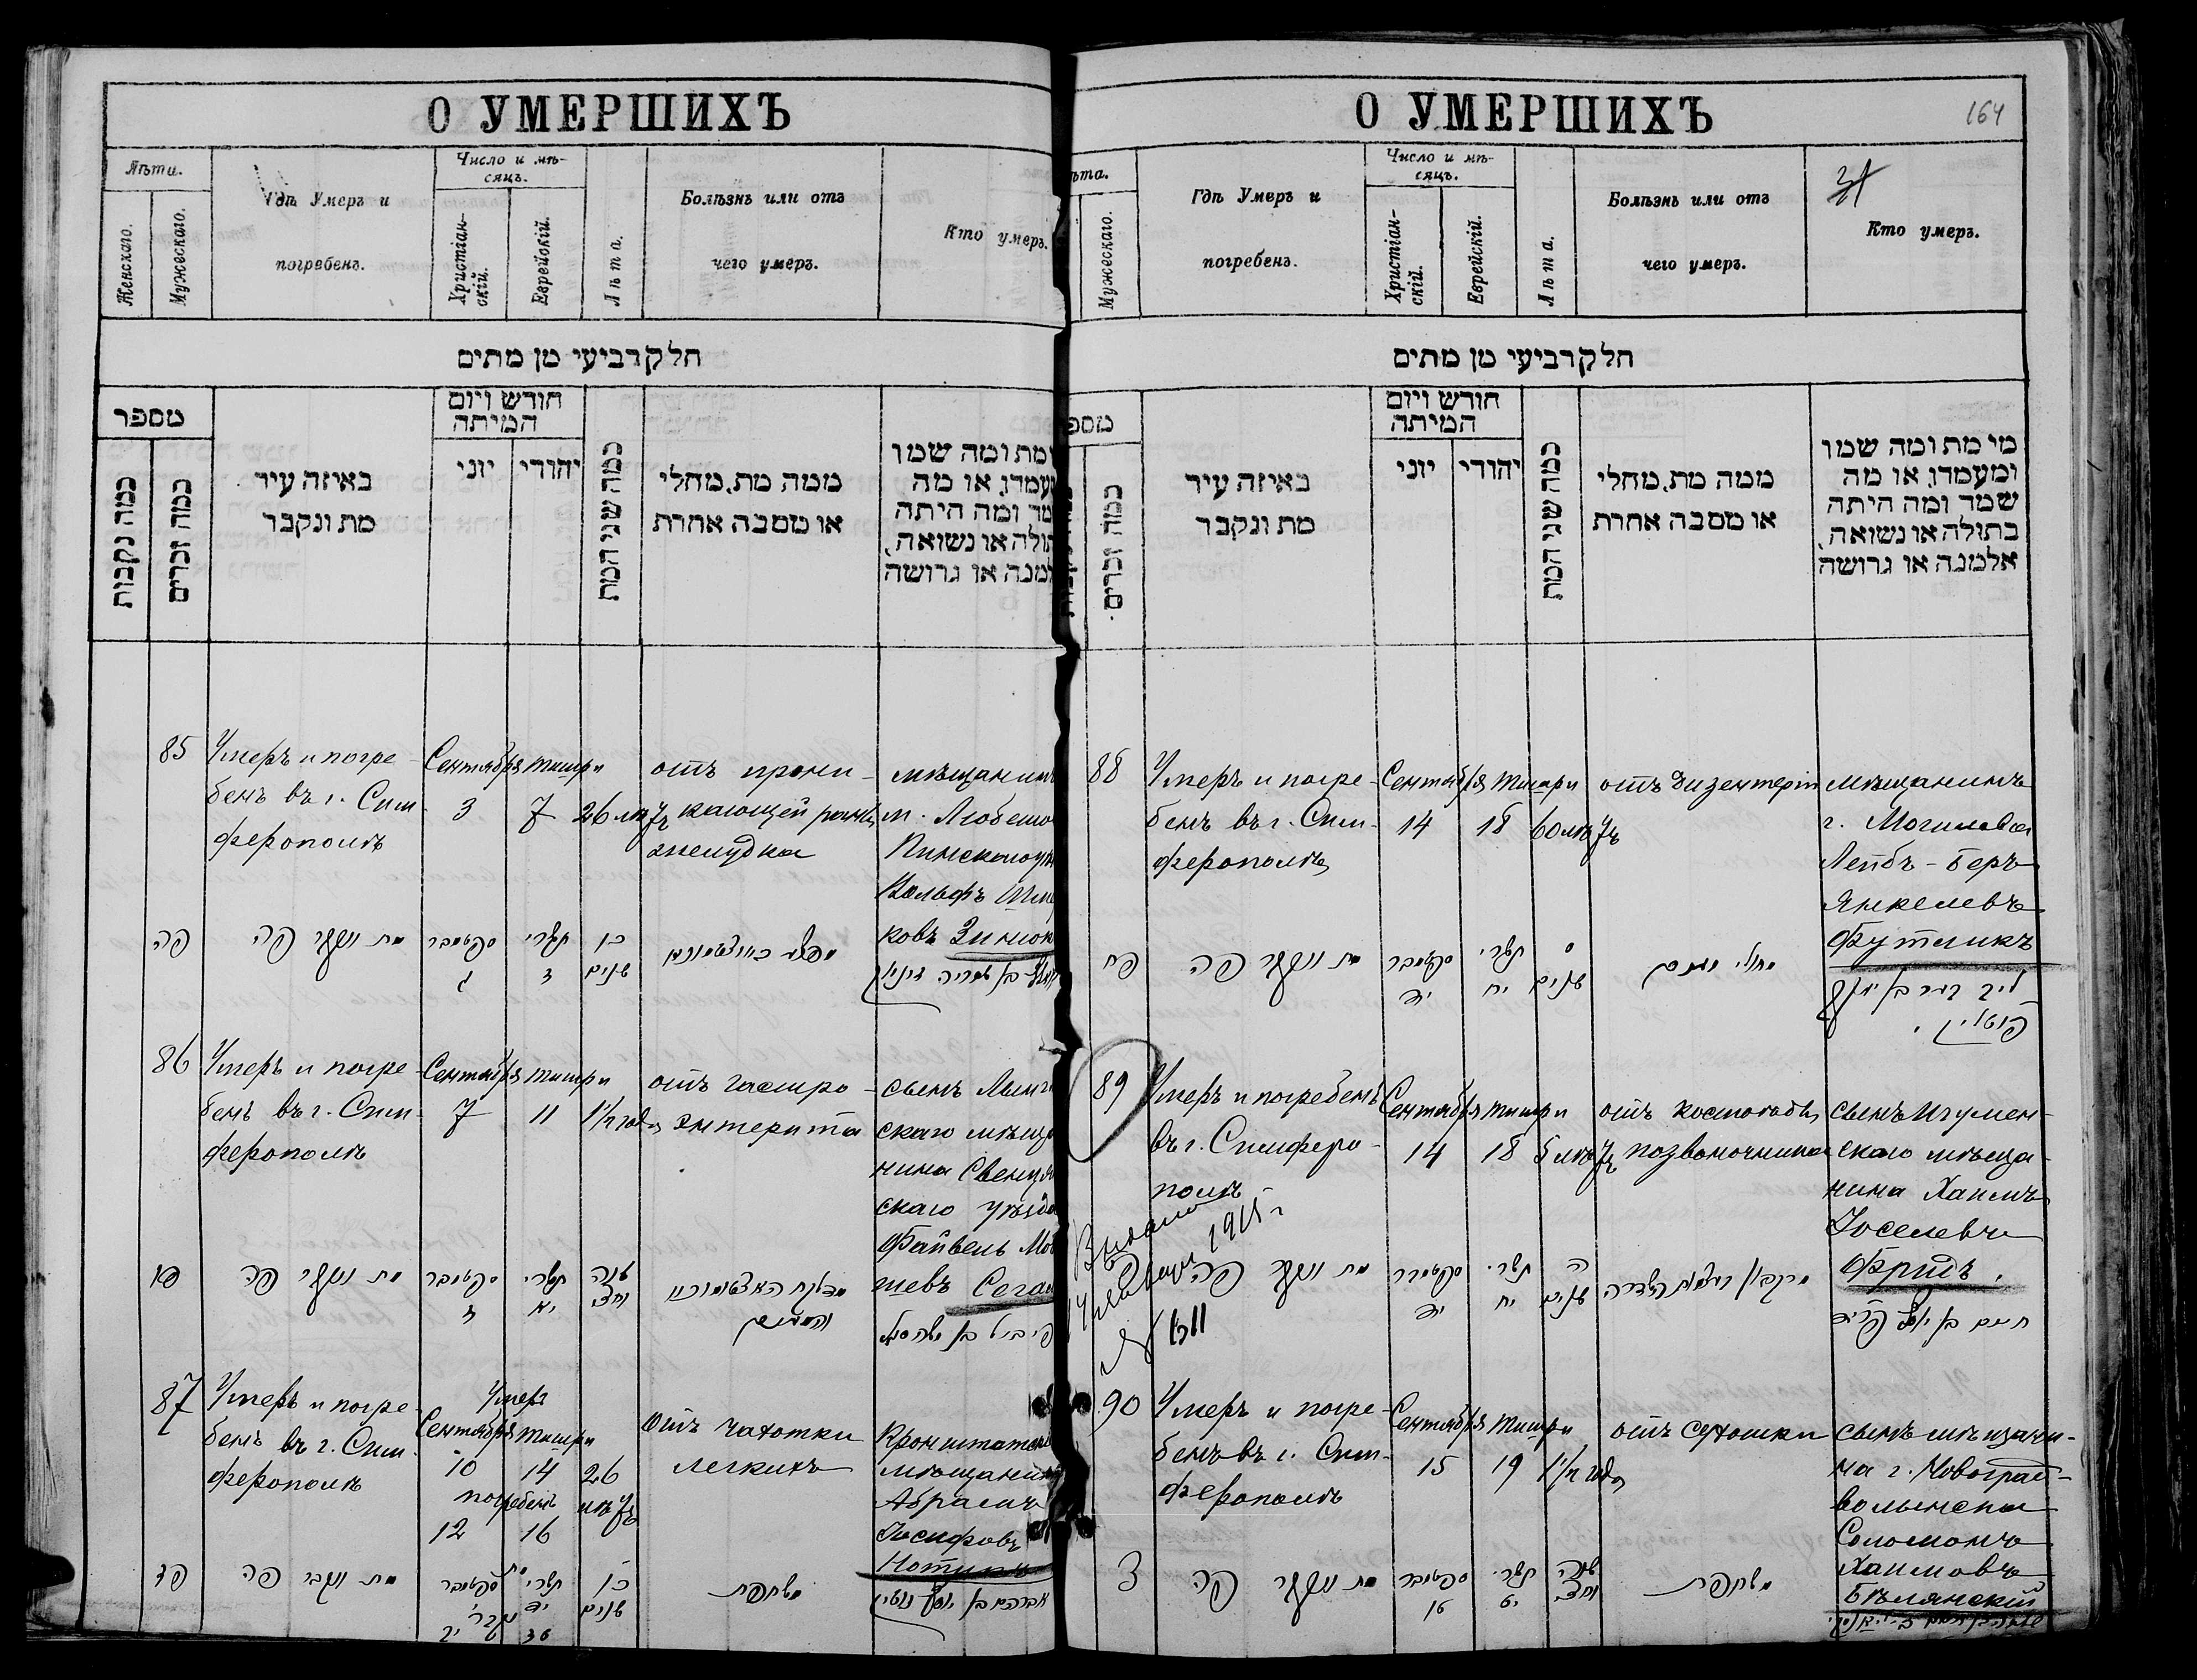 О УМЕРШИХЪ
Лѣти.
Женскаго.
Мужескаго.
Гдѣ Умеръ и
погребенъ.
Число и мѣ-
сяцъ.
Христіан-
скій.
Еврейскій.
Лѣта.
Болѣзнь или отъ
чего умеръ.
Кто умеръ.
חלק רביעי מן מתים
מספר
כמה נקבות
כמה זכרים
באיזה עיר
מת ונקבר
חודש ויום
המיתה
יוני
יהודי
כמה שני המת
ממה מת, מחלי
או מסבה אחרת
מת ומה שמו
או מה
ומה היתה
או נשואה,
או גרושה
85
Умеръ и погре-
бенъ въ г. Сим-
ферополѣ
Сентября Тишри
3 7 26 лѣтъ
отъ прони-
кающей раны
желудка
мѣщанинъ
м. Любешо
Пинскаго
Вольфъ
ковъ Зинюк
פה
מת ונקבר פה
סעפטעמבר
ג
תשרי
ז
כו
שנים
86
Умеръ и погре-
бенъ въ г. Сим-
ферополѣ
Сентября Тишри
7 11 1½ года
отъ гастро-
энтерита
сынъ
скаго мѣща
нина Свенцян
скаго уѣзда
Файвель Мов
шевъ Сега
פו
מת ונקבר פה
סעפטעמבר
ז
תשרי
יא
שנה
וחצי
87
Умеръ и погре-
бенъ въ г. Сим-
ферополѣ
Умеръ
Сентября Тишри
10 14 26
погребенъ лѣтъ
12 16
отъ чахотки
легкихъ
Кронштатскі
мѣщанинъ
Абрамъ
Іосифовъ
Нотикъ
פז
מת ונקבר פה
סעפטעמבר
תשרי
יד
כו
שנים
משחפת
אברהם בן יוסף נוטיק
О УМЕРШИХЪ
164
31
ѣта.
Мужескаго.
Гдѣ Умеръ и
погребенъ.
Число и мѣ-
сяцъ.
Христіан-
скій.
Еврейскій.
Лѣта.
Болѣзнь или отъ
чего умеръ.
Кто умеръ.
חלק רביעי מן מתים
מספ
כמה זכרים
באיזה עיר
מת ונקבר
חודש ויום
המיתה
יוני
יהודי
כמה שני המת
ממה מת, מחלי
או מסבה אחרת
מי מת ומה שמו
ומעמדו, או מה
שמה ומה היתה
בתולה או נשואה,
אלמנה או גרושה
88
Умеръ и погре-
бенъ въ г. Сим-
ферополѣ
Сентября Тишри
14 18 60 лѣтъ
отъ дизентеріи
мѣщанинъ
г. Могилева
Лейбъ-Беръ
Янкелевъ
Футликъ
פח
מת ונקבר פה
סעפטעמבר
יד
תשרי
יח
ס
שנים
ליב בער בן יעקב
פוטליק.
89
Умеръ и погребенъ
въ г. Симферо-
полѣ
Сентября Тишри
14 18 5 лѣтъ
отъ костоѣды
позвоночника
сынъ Игумен-
скаго мѣща-
нина Хаимъ
Іоселевъ
Фридъ.
מת ונקבר פה
סעפטעמבר
יד
תשרי
יח
ה
שנים
חיים בן יוסף פריד
Выдано
14 января 1915 г
90
Умеръ и погре-
бенъ въ г. Сим-
ферополѣ
Сентября Тишри
15 19 1½ года
отъ сухотки
сынъ мѣщани-
на г. Новоград-
волынска
Соломонъ
Хаимовъ
Бѣлянскій
צ
מת ונקבר פה
סעפטעמבר
טו
תשרי
יט
שנה
וחצי
משחפת